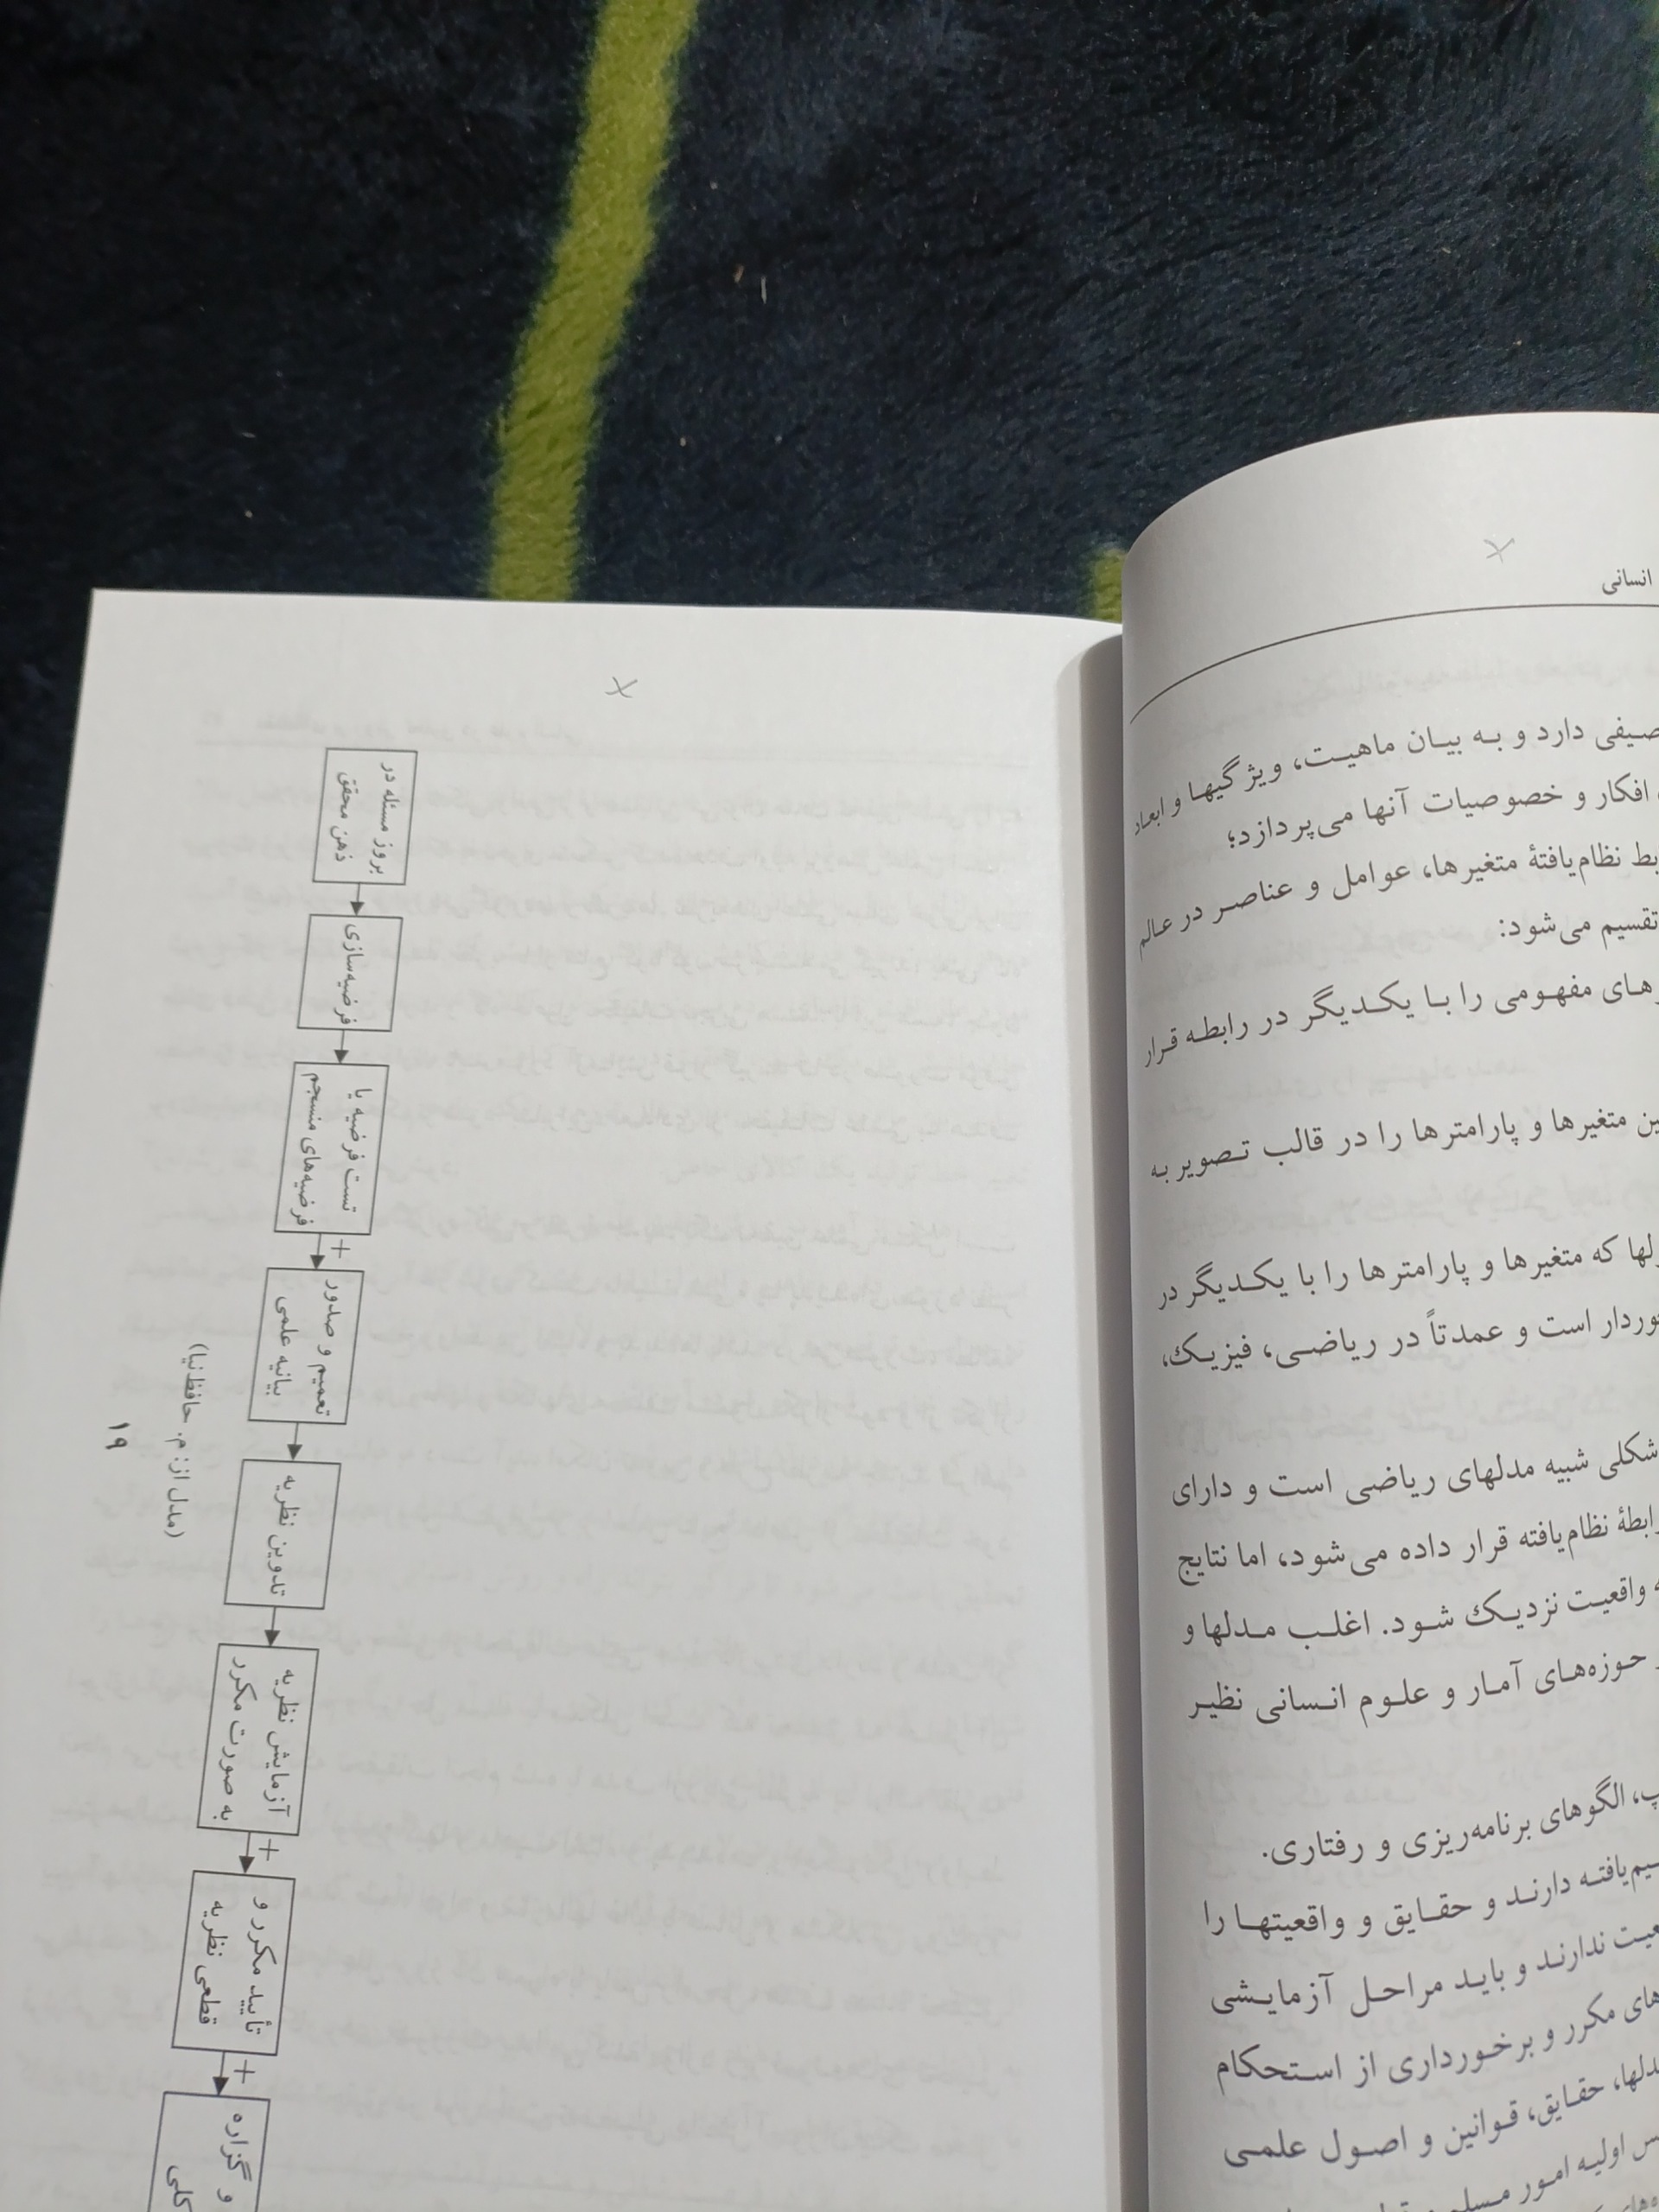 انسانی
صیفی دارد و به بیان ماهیت، ویژگیها و ابعاد
افکار و خصوصیات آنها می‌پردازد؛
بط نظام‌یافتهٔ متغیرها، عوامل و عناصر در عالم
تقسیم می‌شود:
رهای مفهومی را با یکدیگر در رابطه قرار
ین متغیرها و پارامترها را در قالب تصویر به
لها که متغیرها و پارامترها را با یکدیگر در
وردار است و عمدتاً در ریاضی، فیزیک،
شکلی شبیه مدلهای ریاضی است و دارای
رابطهٔ نظام‌یافته قرار داده می‌شود، اما نتایج
ه واقعیت نزدیک شود. اغلب مدلها و
حوزه‌های آمار و علوم انسانی نظیر
پ، الگوهای برنامه‌ریزی و رفتاری.
یم‌یافته دارند و حقایق و واقعیتها را
عیت ندارند و باید مراحل آزمایشی
های مکرر و برخورداری از استحکام
دلها، حقایق، قوانین و اصول علمی
س اولیه امور مسلم
بروز مسئله در
ذهن محقق
فرضیه‌سازی
تست فرضیه یا
فرضیه‌های منسجم
+
تعمیم و صدور
بیانیه علمی
تدوین نظریه
آزمایش نظریه
به صورت مکرر
+
تأیید مکرر و
قطعی نظریه
+
و گزاره
کلی
(مدل از: م. حافظ‌نیا)
۱۹